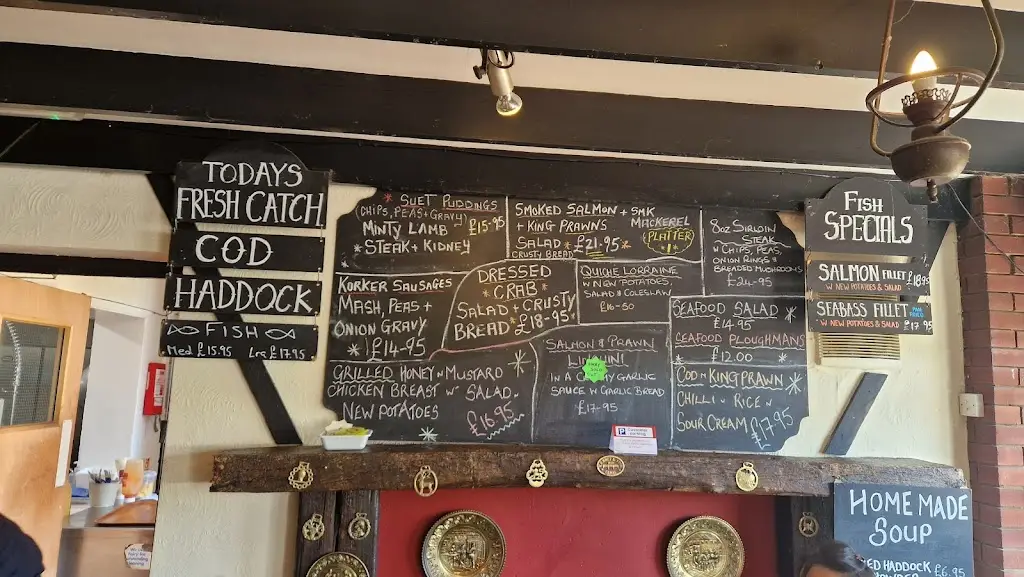 TODAYS
FRESH CATCH
COD
HADDOCK
FISH
Med £15.95 Lrg £17.95
* SUET PUDDINGS
(CHIPS, PEAS + GRAVY)
MINTY LAMB ~ £15-95
* STEAK + KIDNEY
SMOKED SALMON + SMK
MACKEREL
+ KING PRAWNS
PLATTER
SALAD * £21.95 *
CRUSTY BREAD
8oz SIRLOIN
STEAK
W CHIPS, PEAS,
ONION RINGS +
BREADED MUSHROOMS
£24-95
KORKER SAUSAGES
MASH, PEAS +
ONION GRAVY
* £14-95
DRESSED
* CRAB *
SALAD + CRUSTY
BREAD * £18-95 *
QUICHE LORRAINE
W NEW POTATOES,
SALAD & COLESLAW
£16-50
SEAFOOD SALAD *
£14.95
SEAFOOD PLOUGHMANS
* £12.00
GRILLED HONEY N MUSTARD
CHICKEN BREAST W SALAD
NEW POTATOES
£16.95
SALMON & PRAWN
IN A GARLIC
SAUCE W GARLIC BREAD
£17-95
COD N KING PRAWN
CHILLI N RICE N
SOUR CREAM £17.95
FISH
SPECIALS
SALMON FILLET £18.95
W NEW POTATOES & SALAD
SEABASS FILLET
W NEW POTATOES & SALAD £17.95
HOME MADE
SOUP
HADDOCK £6.95